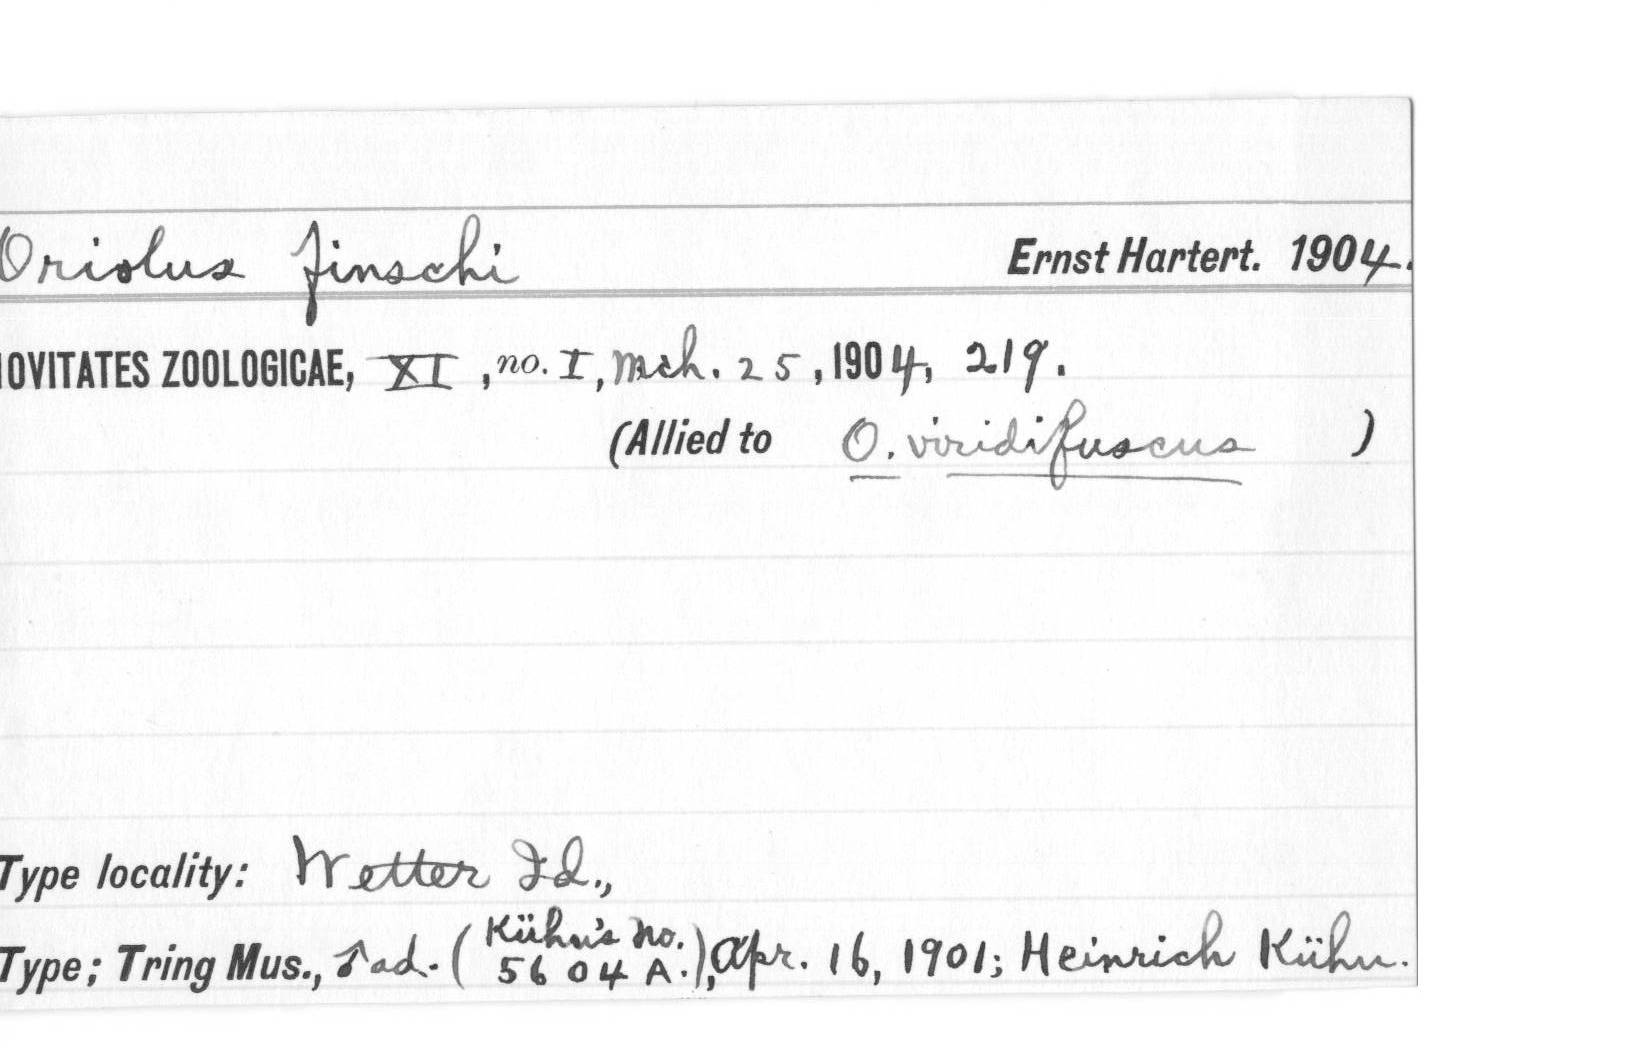 Oriolus finschi Ernst Hartert. 1904.
OVITATES ZOOLOGICAE, XI, no. I, Mch. 25, 1904, 219.
(Allied to O. viridifuscus )
Type locality: Wetter Id.,
Type; Tring Mus., ♂ ad. (Kühn's No. 5604 A.), Apr. 16, 1901; Heinrich Kühn.